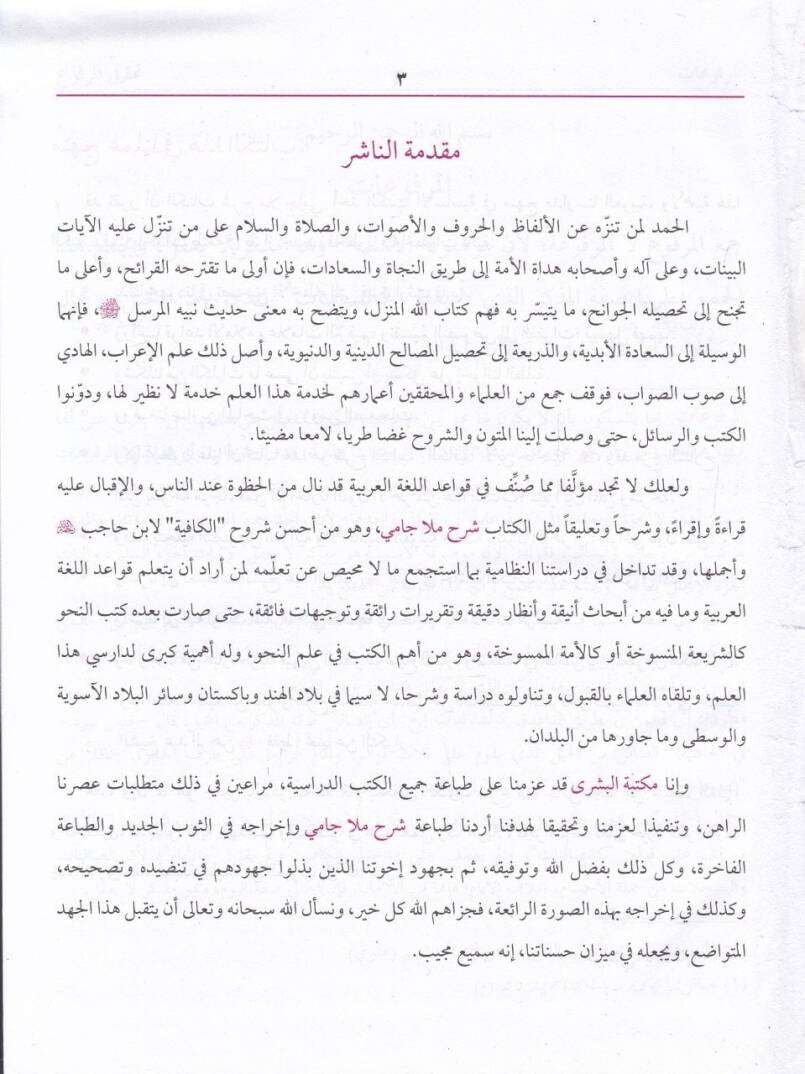 ٣
مقدمة الناشر
الحمد لمن تنزّه عن الألفاظ والحروف والأصوات، والصلاة والسلام على من تنزّل عليه الآيات
البينات، وعلى آله وأصحابه هداة الأمة إلى طريق النجاة والسعادات، فإن أولى ما تقترحه القرائح، وأعلى ما
تجنح إلى تحصيله الجوانح، ما يتيسّر به فهم كتاب الله المنزل، ويتضح به معنى حديث نبيه المرسل ﷺ، فإنهما
الوسيلة إلى السعادة الأبدية، والذريعة إلى تحصيل المصالح الدينية والدنيوية، وأصل ذلك علم الإعراب، الهادي
إلى صوب الصواب، فوقف جمع من العلماء والمحققين أعمارهم لخدمة هذا العلم خدمة لا نظير لها، ودوّنوا
الكتب والرسائل، حتى وصلت إلينا المتون والشروح غضا طريا، لامعا مضيئا.
ولعلك لا تجد مؤلَّفا مما صُنِّف في قواعد اللغة العربية قد نال من الحظوة عند الناس، والإقبال عليه
قراءةً وإقراءً، وشرحاً وتعليقاً مثل الكتاب شرح ملا جامي، وهو من أحسن شروح "الكافية" لابن حاجب
وأجملها، وقد تداخل في دراستنا النظامية بما استجمع ما لا محيص عن تعلّمه لمن أراد أن يتعلم قواعد اللغة
العربية وما فيه من أبحاث أنيقة وأنظار دقيقة وتقريرات رائقة وتوجيهات فائقة، حتى صارت بعده كتب النحو
كالشريعة المنسوخة أو كالأمة الممسوخة، وهو من أهم الكتب في علم النحو، وله أهمية كبرى لدارسي هذا
العلم، وتلقاه العلماء بالقبول، وتناولوه دراسة وشرحا، لا سيما في بلاد الهند وباكستان وسائر البلاد الآسوية
والوسطى وما جاورها من البلدان.
وإنا مكتبة البشرى قد عزمنا على طباعة جميع الكتب الدراسية، مراعين في ذلك متطلبات عصرنا
الراهن، وتنفيذا لعزمنا وتحقيقا لهدفنا أردنا طباعة شرح ملا جامي وإخراجه في الثوب الجديد والطباعة
الفاخرة، وكل ذلك بفضل الله وتوفيقه، ثم بجهود إخوتنا الذين بذلوا جهودهم في تنضيده وتصحيحه،
وكذلك في إخراجه بهذه الصورة الرائعة، فجزاهم الله كل خير، ونسأل الله سبحانه وتعالى أن يتقبل هذا الجهد
المتواضع، ويجعله في ميزان حسناتنا، إنه سميع مجيب.